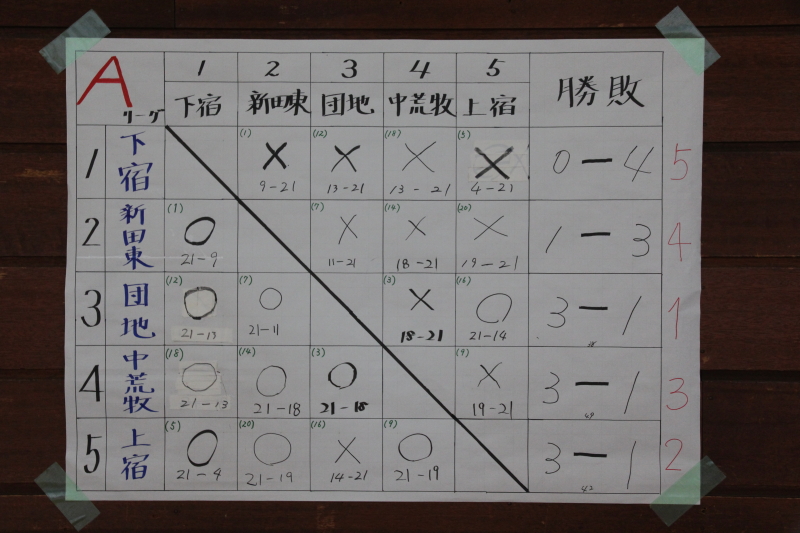 A リーグ 1 2 3 4 5 勝敗
下宿 新田東 団地 中荒牧 上宿
1 下宿 (1) × 9-21 (12) × 13-21 (18) × 13-21 (5) × 4-21 0-4 5
2 新田東 (1) ○ 21-9 (7) × 11-21 (14) × 18-21 (20) × 19-21 1-3 4
3 団地 (12) ○ 21-13 (7) ○ 21-11 (3) × 18-21 (16) ○ 21-14 3-1 1
4 中荒牧 (18) ○ 21-13 (14) ○ 21-18 (3) ○ 21-18 (9) × 19-21 3-1 3
5 上宿 (5) ○ 21-4 (20) ○ 21-19 (16) × 14-21 (9) ○ 21-19 3-1 2